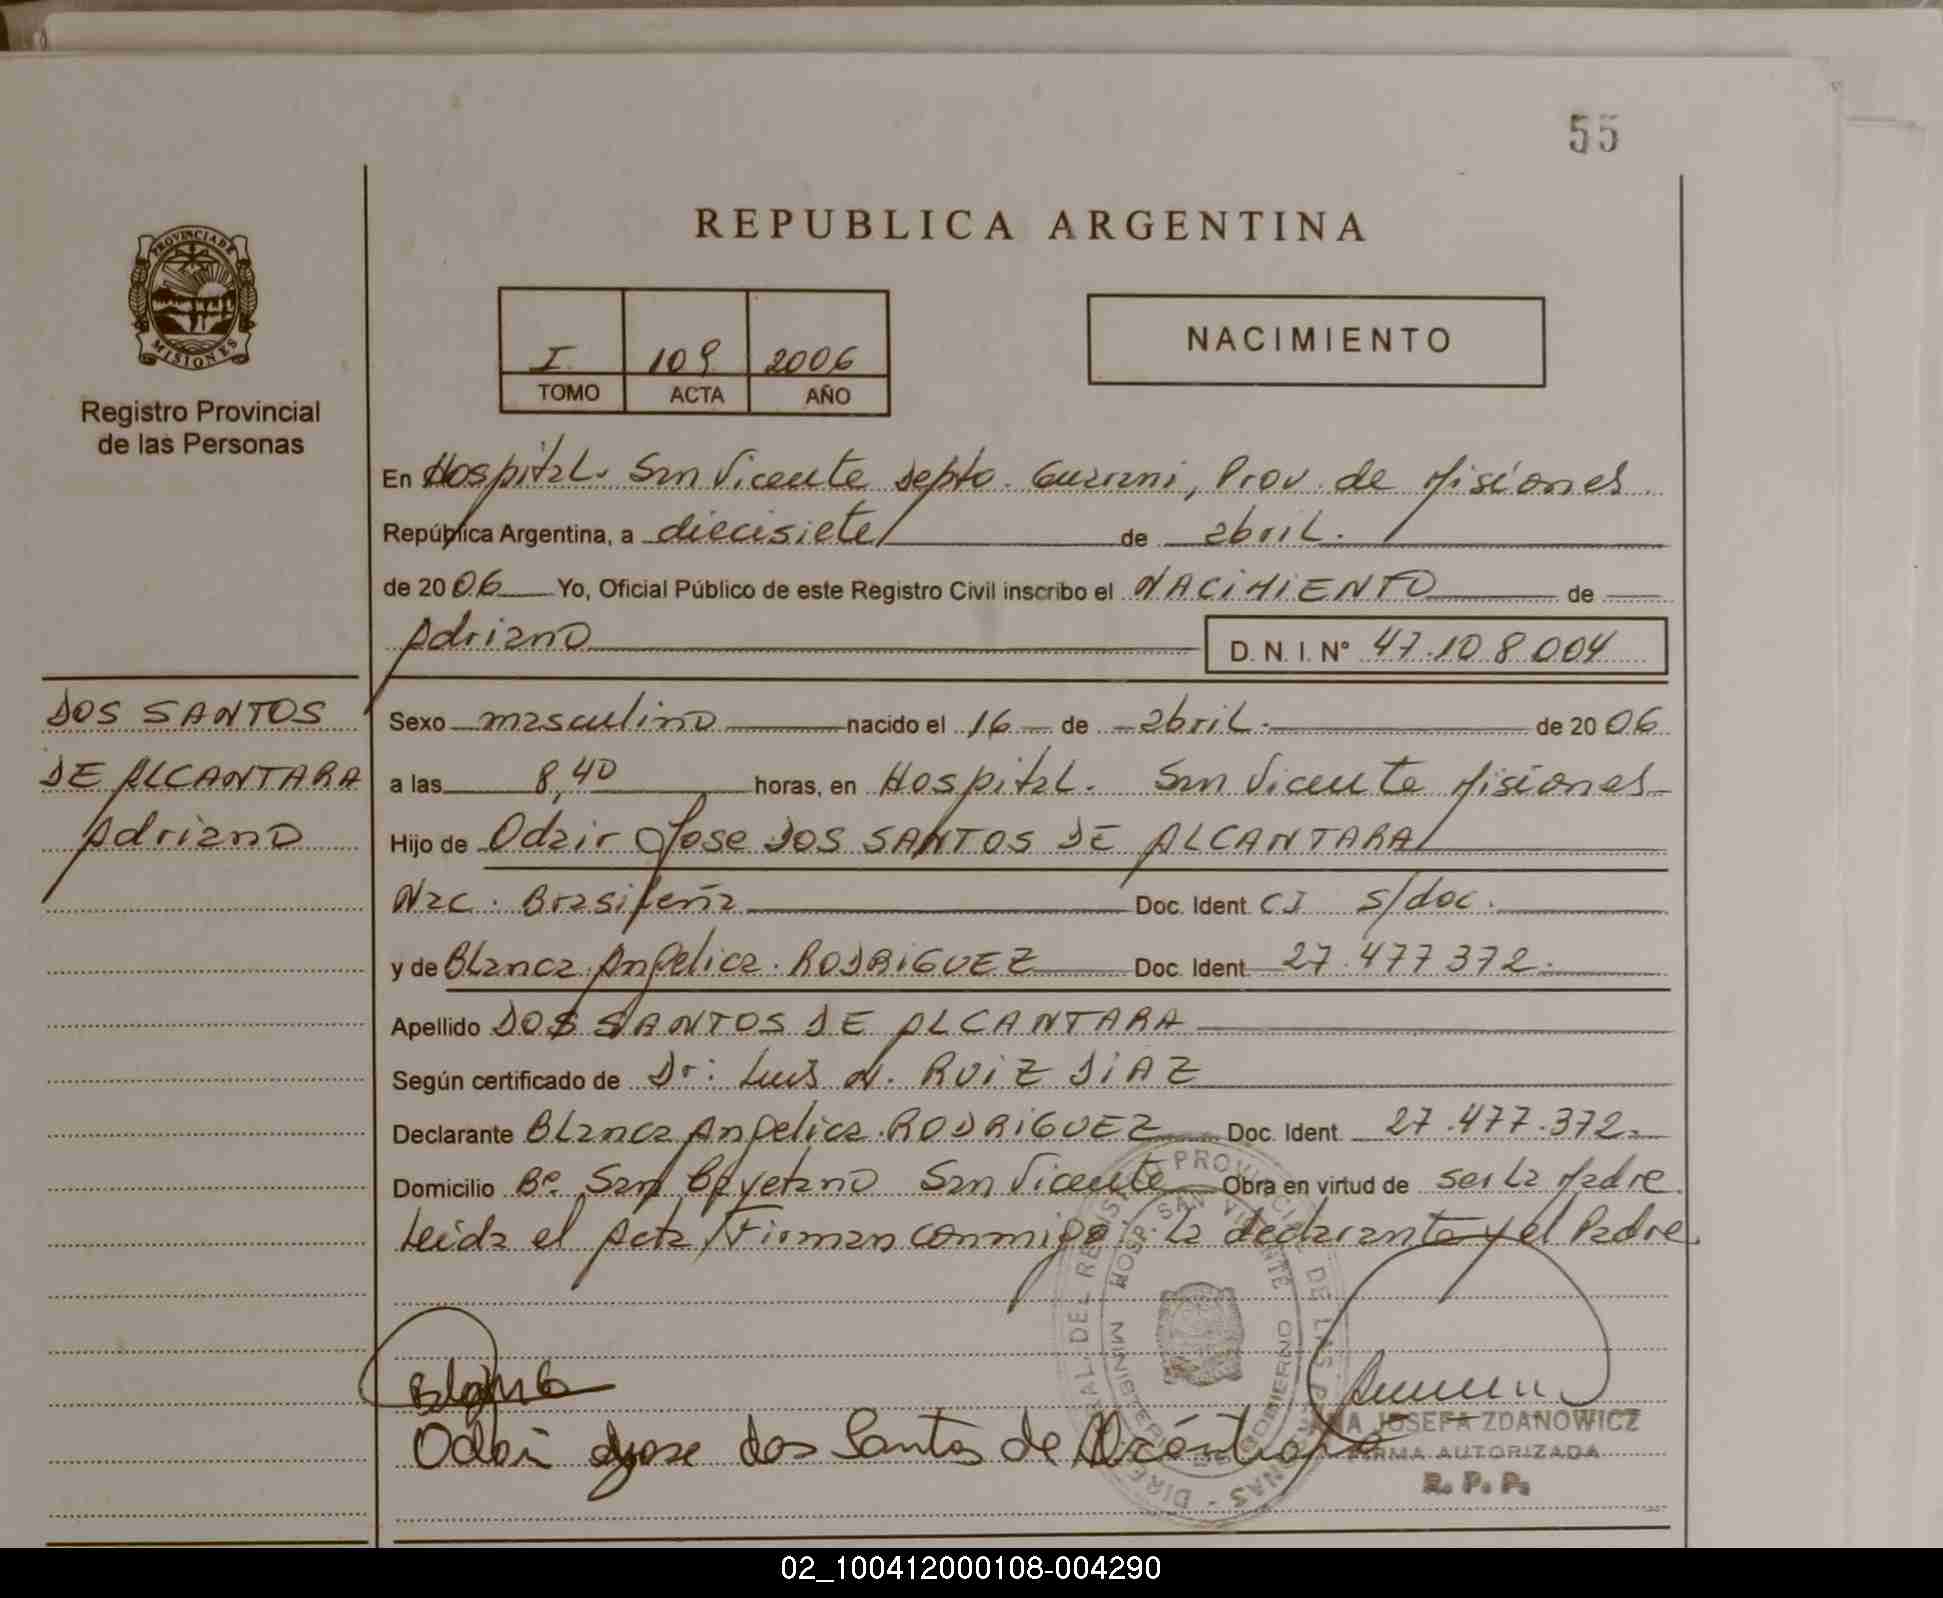 55
REPUBLICA ARGENTINA
PROVINCIA DE
MISIONES
Registro Provincial
de las Personas
I 109 2006
TOMO ACTA AÑO
NACIMIENTO
En Hospital. San Vicente Depto. Guarani, Prov. de Misiones
República Argentina, a diecisiete de abril.
de 2006 Yo, Oficial Público de este Registro Civil inscribo el NACIMIENTO de
Adriano D. N. I. N° 47.108.004
DOS SANTOS
DE ALCANTARA
Adriano
Sexo masculino nacido el 16 de abril. de 2006
a las 8,40 horas, en Hospital. San Vicente Misiones
Hijo de Odair Jose DOS SANTOS DE ALCANTARA
Nac. Brasileña Doc. Ident. CI s/doc.
y de Blanca Angelica. RODRIGUEZ Doc. Ident. 27.477.372.
Apellido DOS SANTOS DE ALCANTARA
Según certificado de Dr: Luis N. RUIZ DIAZ
Declarante Blanca Angelica. RODRIGUEZ Doc. Ident. 27.477.372.
Domicilio B°. San Cayetano San Vicente Obra en virtud de ser la Madre
Leida el Acta, Firman conmigo: la declarante y el Padre.
Odair Jose dos Santos de Alcântara
JOSEFA ZDANOWICZ
FIRMA AUTORIZADA
R. P. P.
HOSP. SAN VICENTE
MINISTERIO DE GOBIERNO
02_100412000108-004290